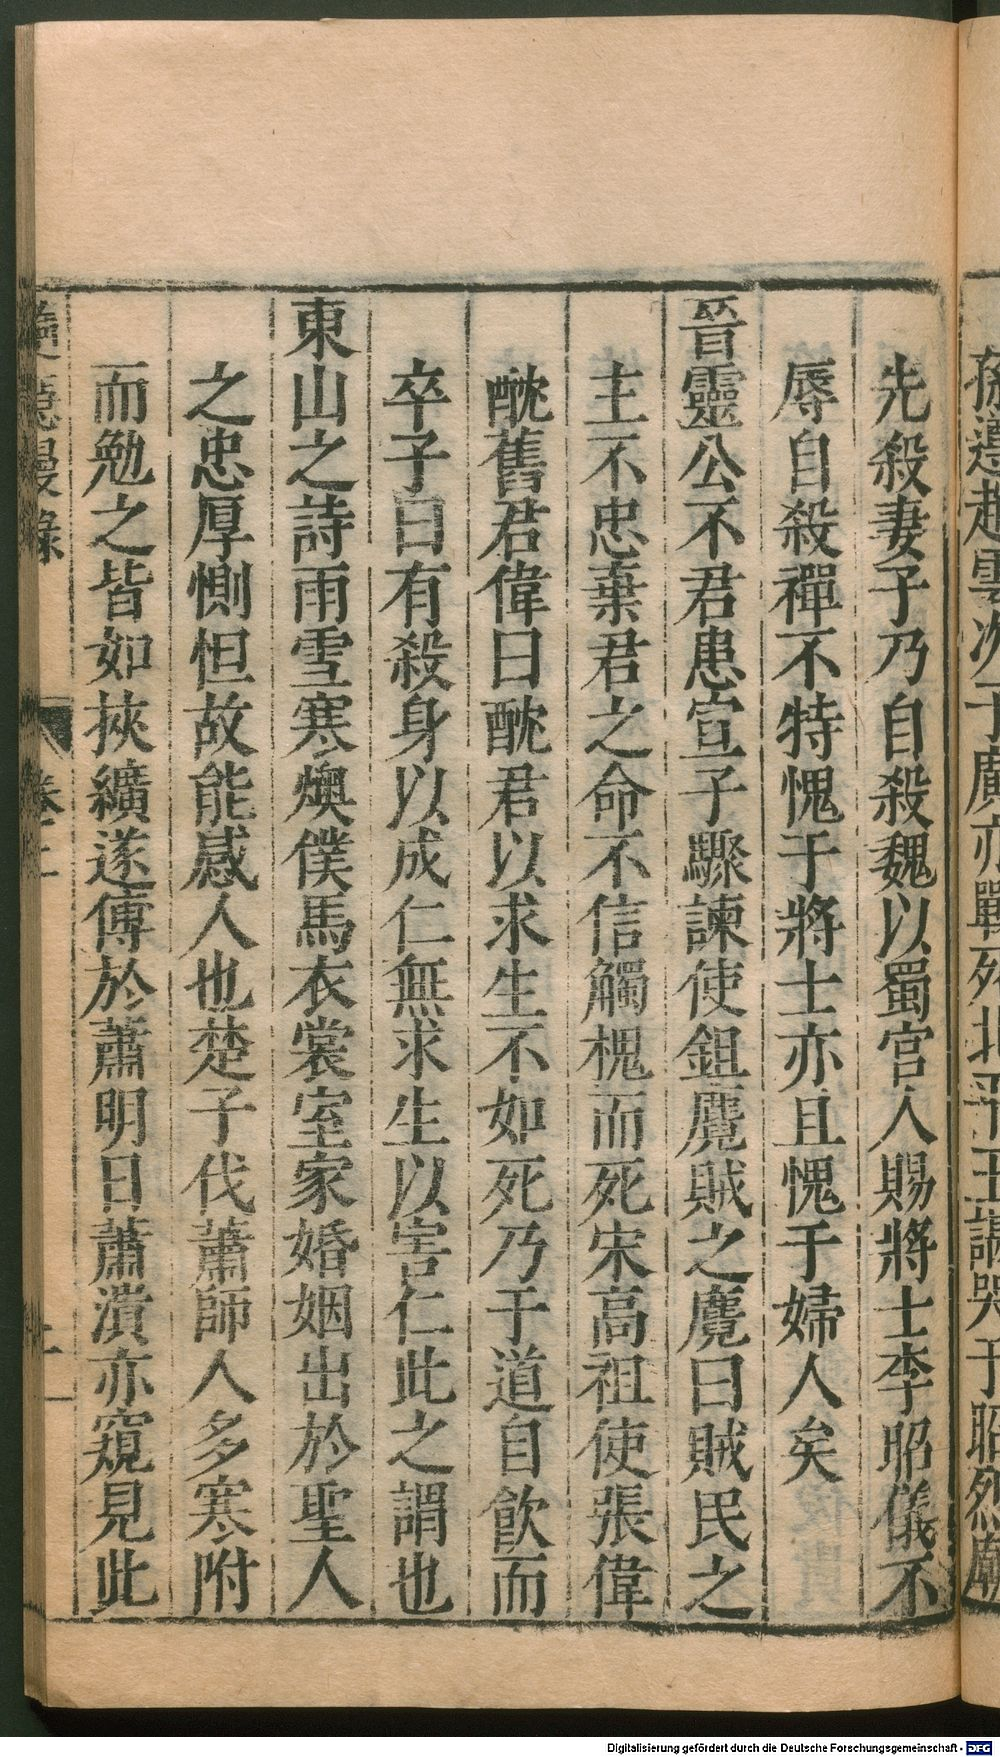 孫遵趙雲次子廣亦戰死北
先殺妻子乃自殺魏以蜀宮人賜將士李昭儀不
辱自殺禪不特愧于將士亦且愧于婦人矣
晉靈公不君患宣子驟諫使鉏麑賊之麑曰賊民之
主不忠棄君之命不信觸槐而死宋高祖使張偉
酖舊君偉曰酖君以求生不如死乃于道自飲而
卒子曰有殺身以成仁無求生以害仁此之謂也
東山之詩雨雪寒燠僕馬衣裳室家婚姻出於聖人
之忠厚惻怛故能感人也楚子伐蕭師人多寒附
而勉之皆如挾纊遂傅於蕭明日蕭潰亦窺見此
Digitalisierung gefördert durch die Deutsche Forschungsgemeinschaft - DFG